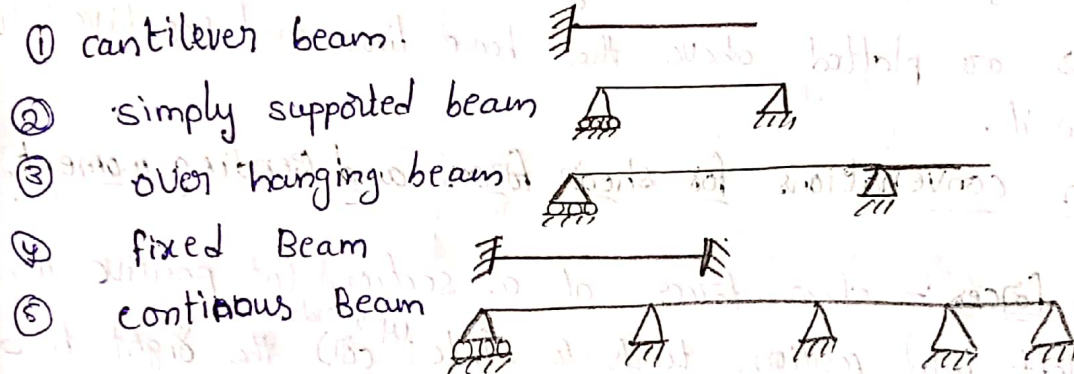 ① cantilever beam.
② simply supported beam
③ over hanging beam.
④ fixed Beam
⑤ continous Beam